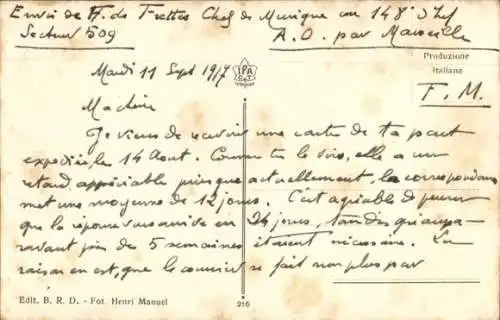 Envoi de H. des Frettes Chef de Musique au 148e d'Inf
Secteur 509
A.O. par Marseille
Produzione
Italiana
Mardi 11 Sept 1917
IPA
C.T.
F.M.
Ma chère
Je viens de recevoir une carte de ta part
expédiée le 14 Aout. Comme tu le vois, elle a un
retard appréciable puisque actuellement, la correspondance
met une moyenne de 12 jours. C'est agréable de penser
que la réponse vous arrive en 24 jours, tandis qu'aupa-
ravant près de 5 semaines étaient nécessaires. La
raison en est, que le courrier se fait non plus par
Edit. B. R. D. - Fot. Henri Manuel
216